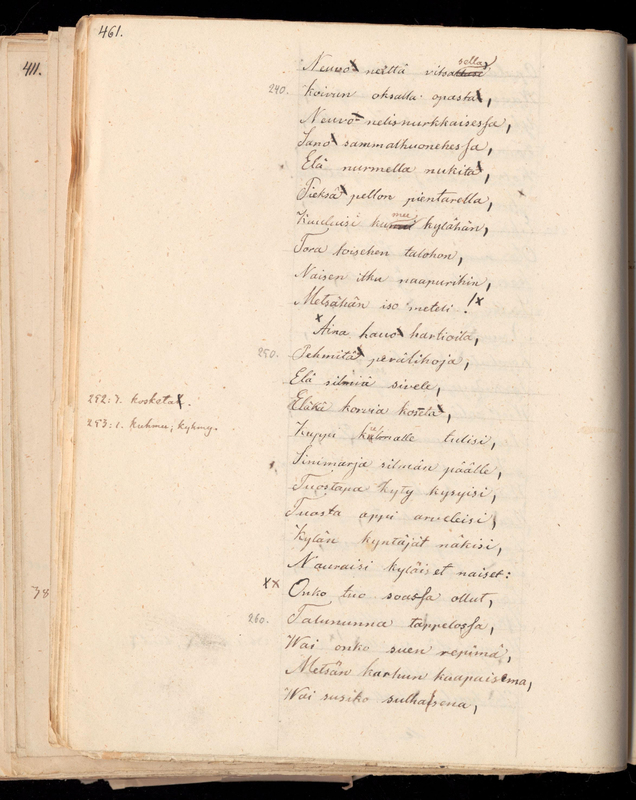 461.
411.
Neuvo neittä vitsasella
240. Koivun oksalla opasta,
Neuvo nelisnurkkaisessa,
Sano sammalhuonehessa,
Elä nurmella nukita,
Pieksä pellon pientarella,
Kuuluisi kumu kylähän,
Tora toisehen talohon,
Naisen itku naapurihin,
Metsähän iso meteli!x
x Aina hauo hartioita,
250. Pehmitä perälihoja,
Elä silmiä sivele,
252: 1. kosketa.
Eläkä korvia koseta,
253: 1. kuhmu; kyhmy.
Kuppi kulmalle tulisi,
Sinimarja silmän päälle,
Tuostapa kyty kysyisi,
Tuosta appi arveleisi,
Kylän kyntäjät näkisi,
Nauraisi kyläiset naiset:
xx Onko tuo soassa ollut,
38
260. Talununna tappelossa,
Wai onko suen repimä,
Metsän karhun kaapaisema,
Wai susiko sulhasena,